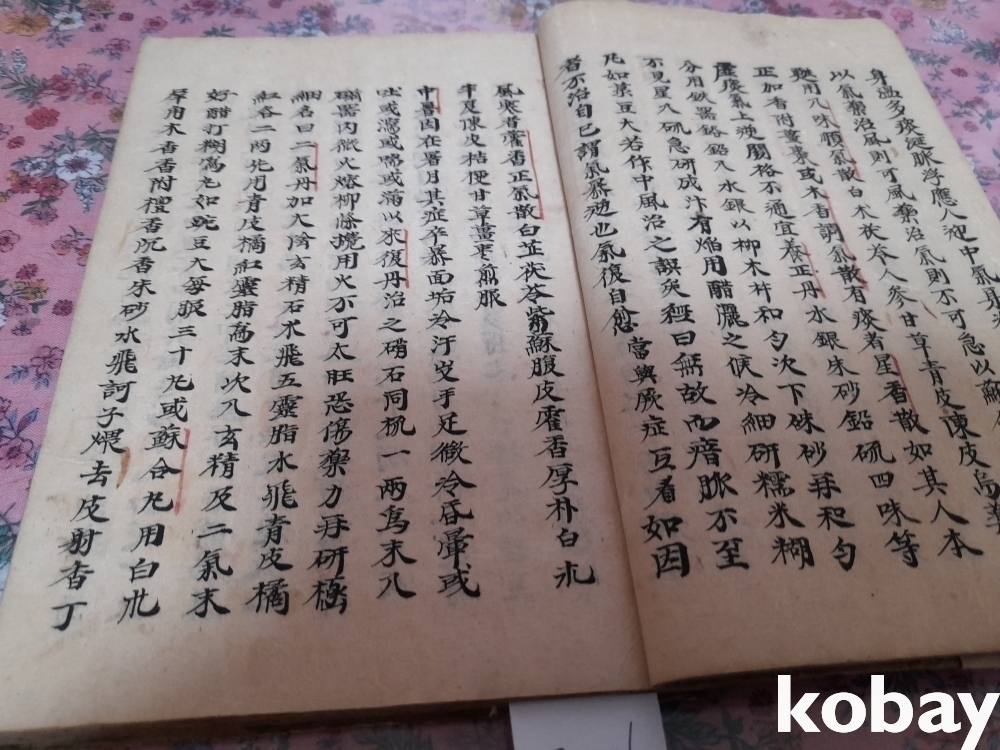 身溫多痰涎脉浮應人迎中氣身
以氣藥治風則可風藥治氣則不可急以蘇
甦用八味順氣散白木茯苓人參甘草青皮陳皮烏
正加香附薑棗或木香調氣散有痰者星香散如其人本
虛痰氣上逆関格不通宜養正丹水銀朱砂鉛硫四味等
分用鉄器鎔鉛入水銀以柳木杵和匀次下硃砂再和匀
不見星入硫急研成汁有焰用醋灑之候冷細研糯米糊
凡如菉豆大若作中風治之誤矣經曰無故而瘖脉不至
者不治自已謂氣暴逆也氣復自愈當與厥症互看如因
風寒者藿香正氣散白芷茯苓紫蘇腹皮藿香厚朴白朮
半夏陳皮桔梗甘草薑枣煎服
中暑因在暑月其症卒暴面垢冷汗出手足微冷昏暈或
吐或瀉或喘或滿以來復丹治之硝石同硫一兩為末入
磁器内𢇲火熔柳條攪用火不可太旺恐傷藥力再研極
細名曰二氣丹加太陰玄精石水飛五靈脂水飛青皮橘
紅各二兩先用青皮橘紅靈脂為末次入玄精及二氣末
好醋打糊為丸如豌豆大每服三十丸或蘇合丸用白朮
犀角木香香附檀香沉香朱砂水飛訶子煨去皮射香丁
kobay